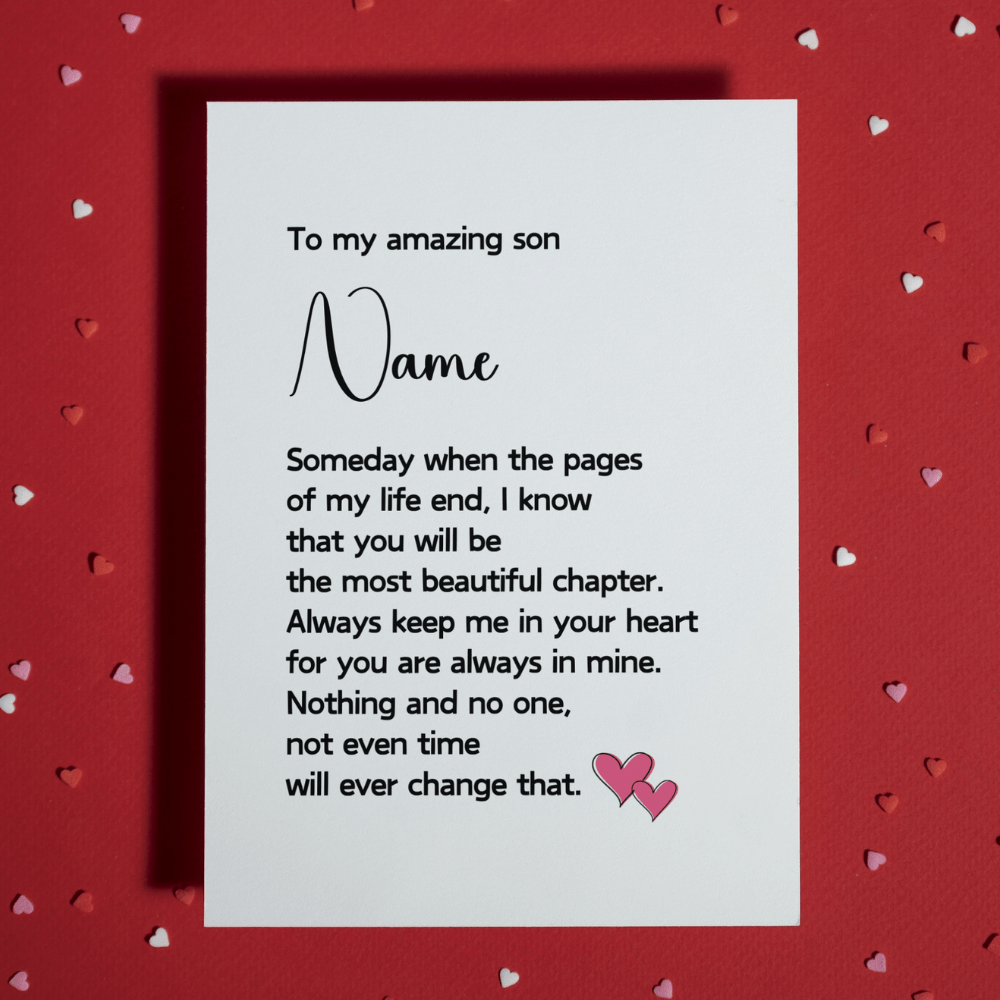 To my amazing son
Name
Someday when the pages
of my life end, I know
that you will be
the most beautiful chapter.
Always keep me in your heart
for you are always in mine.
Nothing and no one,
not even time
will ever change that.